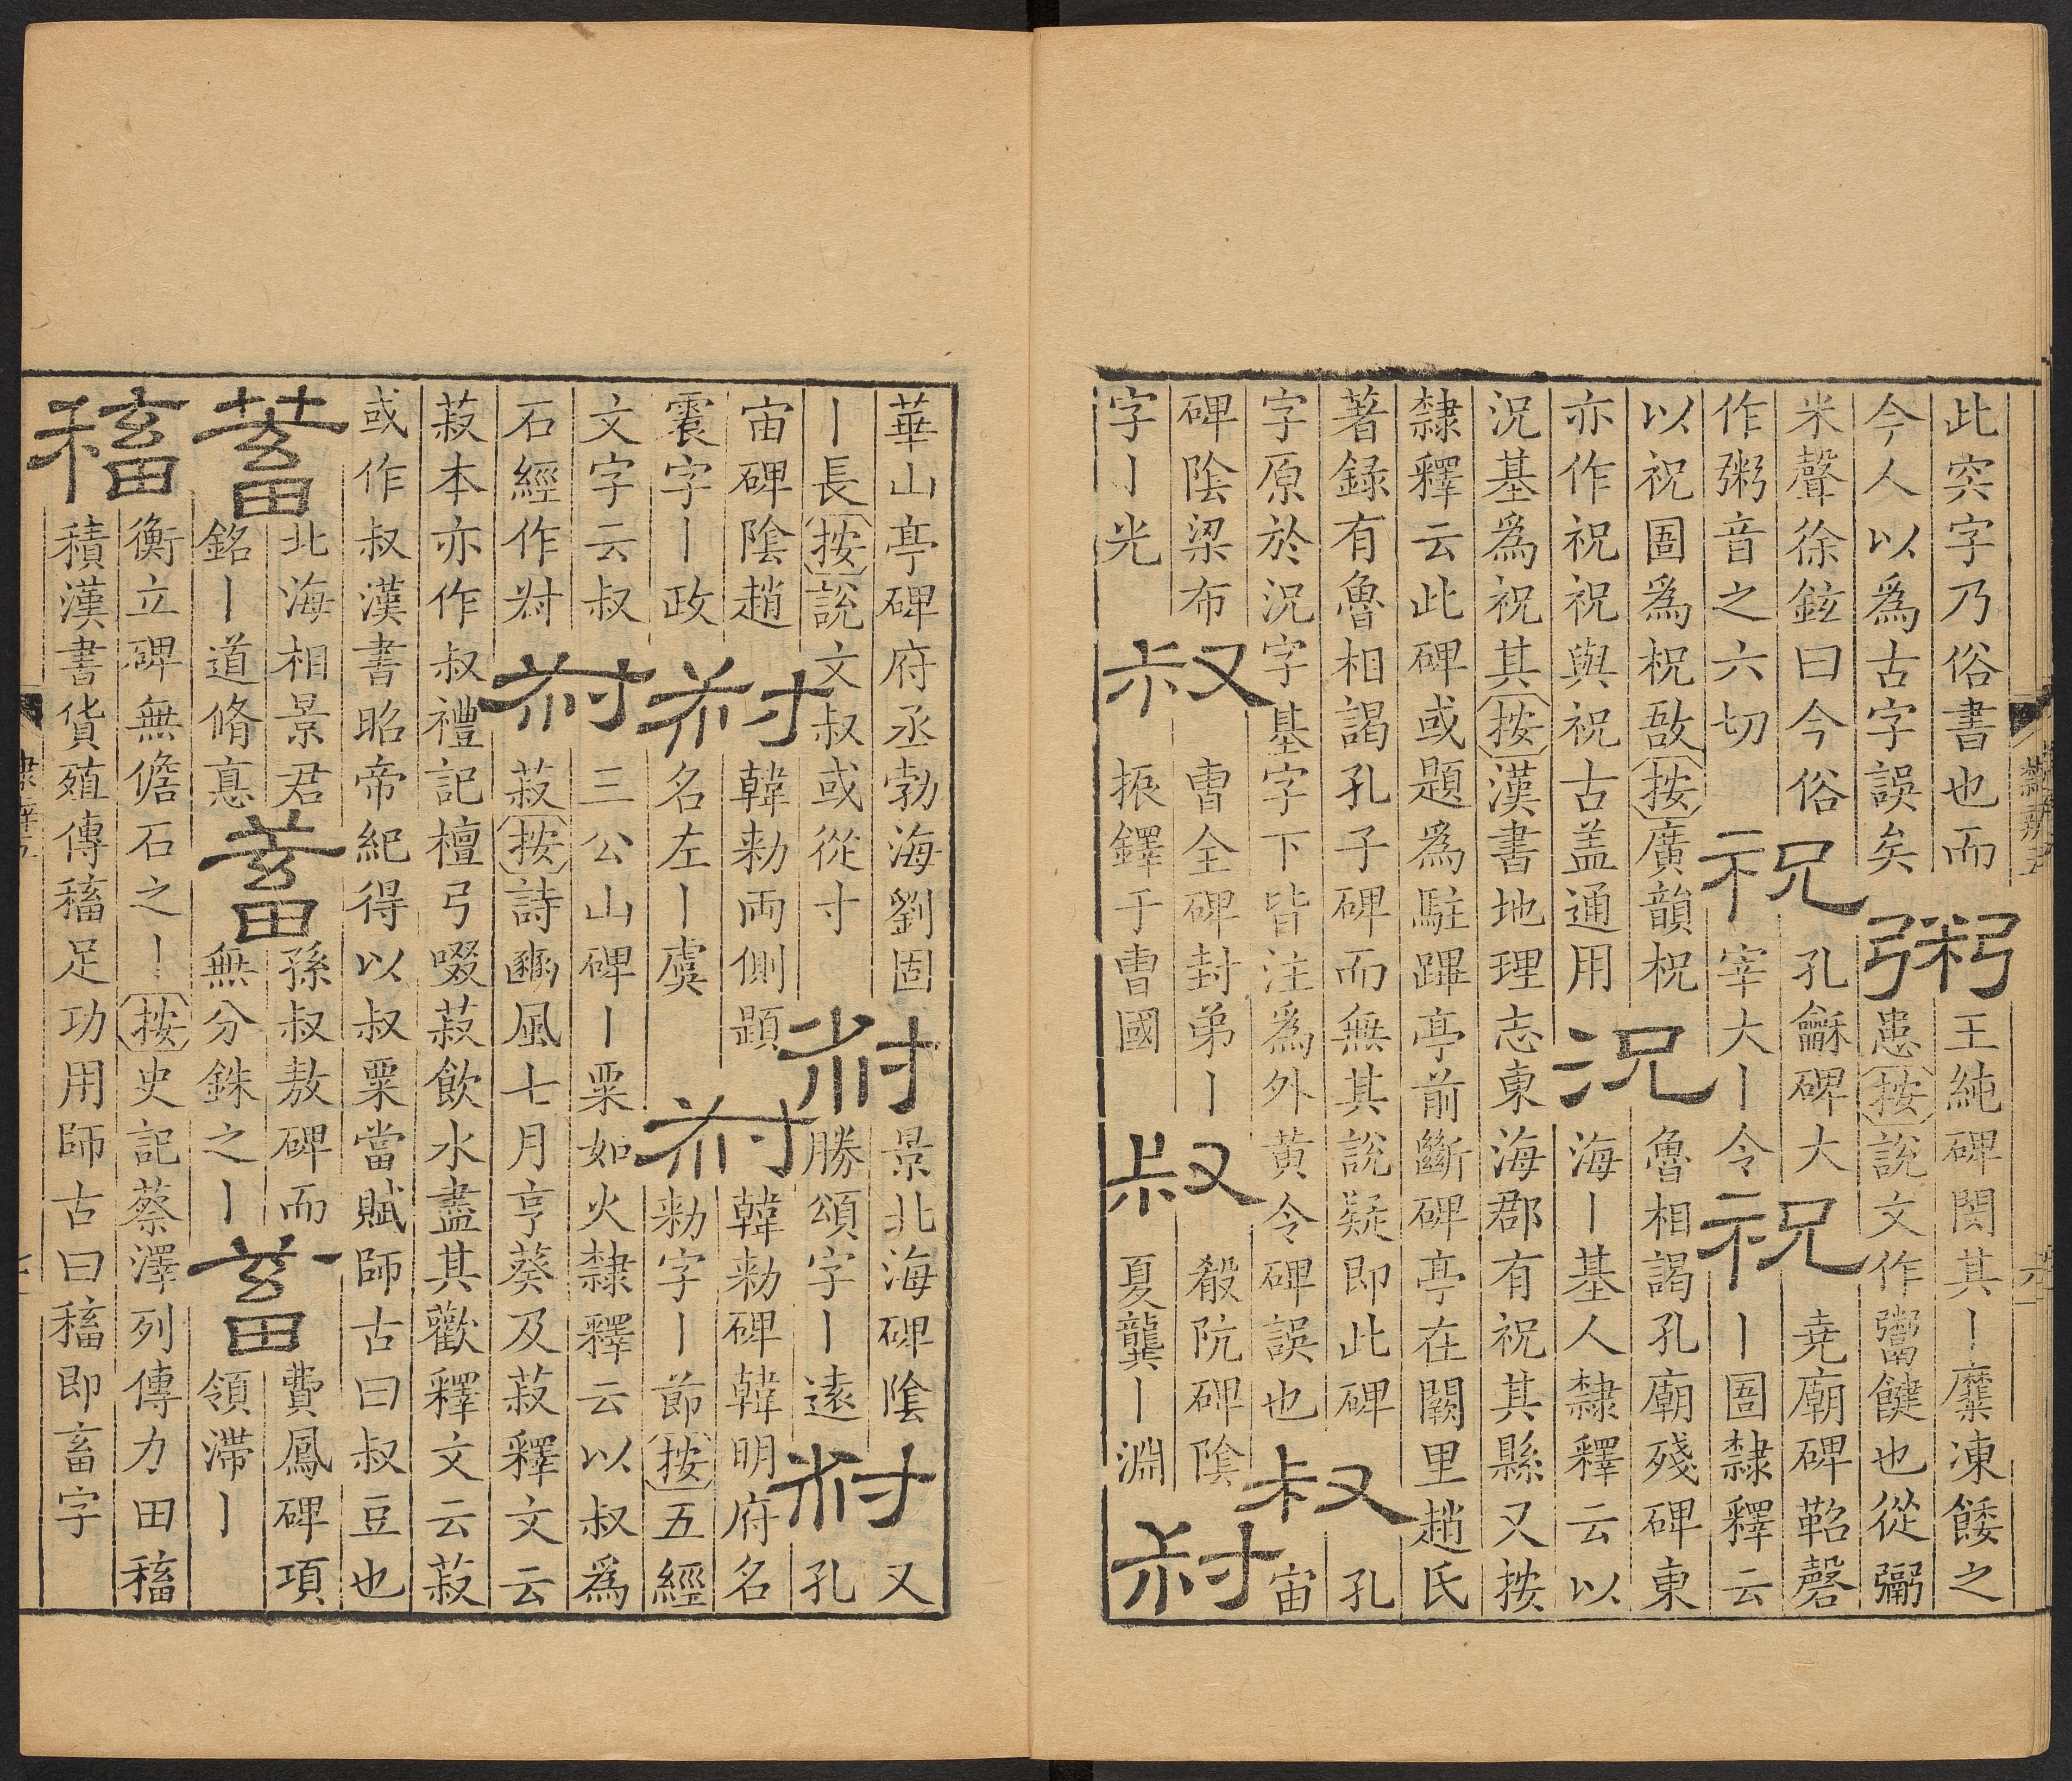 此突字乃俗書也而
今人以為古字誤矣
粥
王純碑閔其丨麋凍餧之
患按說文作鬻健也從䰜
米聲徐鉉曰今俗
作粥音之六切
祝
孔龢碑大
宰大丨令
祝
堯廟碑鞀磬
丨圄隸釋云
以祝圄為柷敔按廣韻柷
亦作祝祝與祝古盖通用
況
魯相謁孔廟殘碑東
海丨基人隸釋云以
況基為祝其按漢書地理志東海郡有祝其縣又按
隸釋云此碑或題為駐蹕亭前斷碑亭在闕里趙氏
著錄有魯相謁孔子碑而無其說疑即此碑
字原於況字基字下皆注為外黃令碑誤也
叔
孔
宙
碑陰梁布
字丨光
叔
曹全碑封弟丨
振鐸于曹國
叔
殽阬碑陰
夏龔丨淵
𡬧
華山亭碑府丞勃海劉固
丨長按說文叔或從寸
𡬧
景北海碑陰
勝頌字丨遠
𡬧
又
孔
宙碑陰趙
震字丨政
𡬧
韓勑兩側題
名左丨虞
𡬧
韓勑碑韓明府名
勑字丨節按五經
文字云叔
石經作𡬧
𡬧
三公山碑丨粟如火隸釋云以叔為
菽按詩豳風七月亨葵及菽釋文云
菽本亦作叔禮記檀弓啜菽飲水盡其歡釋文云菽
或作叔漢書昭帝紀得以叔粟當賦師古曰叔豆也
蓄
北海相景君
銘丨道脩悳
蓄
孫叔敖碑而
無分銖之丨
蓄
費鳳碑項
領滯丨
稸
衡立碑無儋石之丨按史記蔡澤列傳力田稸
積漢書貨殖傳稸足功用師古曰稸即畜字